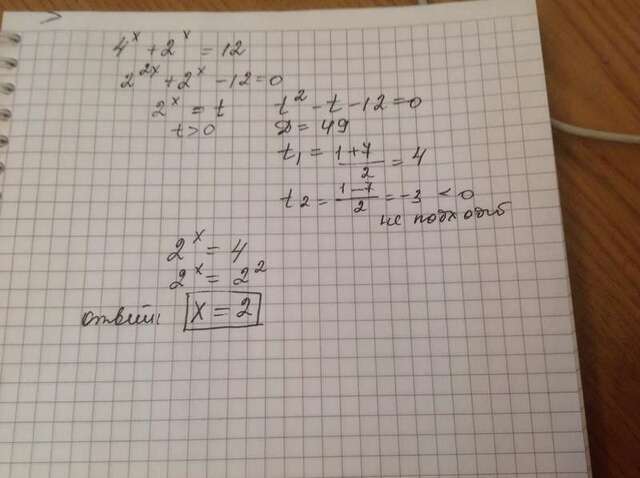 4^x + 2^x = 12
2^{2x} + 2^x - 12 = 0
2^x = t
t > 0
t^2 - t - 12 = 0
D = 49
t_1 = \frac{1+7}{2} = 4
t_2 = \frac{1-7}{2} = -3 < 0
не подходит
2^x = 4
2^x = 2^2
ответ: x = 2